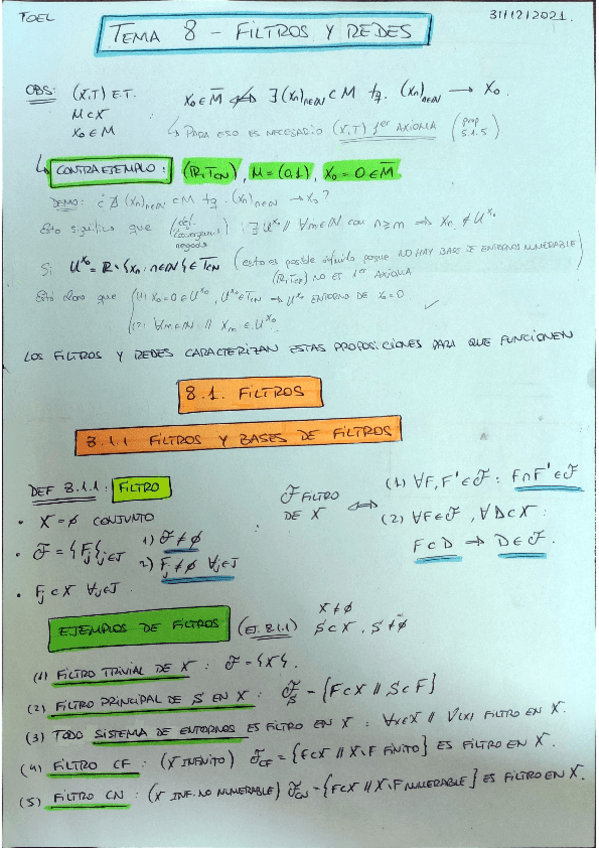 TOEL 31/12/2021.
TEMA 8 - FILTROS Y REDES
OBS: (X,T) E.T. x₀∈M̄ ⇎ ∃(xₙ)ₙ∈ℕ ⊂ M tq. (xₙ)ₙ∈ℕ → x₀.
M⊂X
x₀∈M ↳ PARA ESO ES NECESARIO (X,T) 1er AXIOMA (prop 5.1.5)
↳ CONTRAEJEMPLO: (ℝ,T_CN), M=(0,1), x₀=0∈M̄
DEMO: ¿∄(xₙ)ₙ∈ℕ ⊂M tq. (xₙ)ₙ∈ℕ → x₀?
Esto significa que (def. convergencia negada): ∃U^x₀ // ∀m∈ℕ con n≥m ⇒ xₙ∉U^x₀
Si U^x₀ = ℝ∖{xₙ : n∈ℕ}∈T_CN (esto es posible infinito porque NO HAY BASE DE ENTORNOS NUMERABLE)
(ℝ,T_CN) NO ES 1er AXIOMA
Está claro que (1) x₀=0∈U^x₀, U^x₀∈T_CN → U^x₀ ENTORNO DE x₀=0. ✓
(2) ∀m∈ℕ // xₘ∉U^x₀.
LOS FILTROS Y REDES CARACTERIZAN ESTAS PROPOSICIONES PARA QUE FUNCIONEN
8.1. FILTROS
8.1.1 FILTROS Y BASES DE FILTROS
DEF 8.1.1: FILTRO
• X≠∅ CONJUNTO
• ℱ={Fⱼ}ⱼ∈J 1) ℱ≠∅
2) Fⱼ≠∅ ∀j∈J
• Fⱼ⊂X ∀j∈J.
ℱ FILTRO DE X ⇔ (1) ∀F,F'∈ℱ : F∩F'∈ℱ
(2) ∀F∈ℱ, ∀D⊂X :
F⊂D → D∈ℱ.
EJEMPLOS DE FILTROS (EJ. 8.1.1) X≠∅
S⊂X, S≠∅
(1) FILTRO TRIVIAL DE X : ℱ={X}.
(2) FILTRO PRINCIPAL DE S EN X : ℱ_S = {F⊂X // S⊂F}
(3) TODO SISTEMA DE ENTORNOS ES FILTRO EN X : ∀x∈X // V(x) FILTRO EN X.
(4) FILTRO CF : (X INFINITO) ℱ_CF = {F⊂X // X∖F FINITO} ES FILTRO EN X.
(5) FILTRO CN : (X INF. NO NUMERABLE) ℱ_CN = {F⊂X // X∖F NUMERABLE} ES FILTRO EN X.